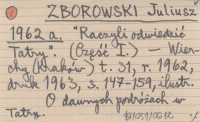 ZBOROWSKI Juliusz
1962 a. "Raczyli odwiedzić
Tatry." (Część I.) — Wier-
chy (Kraków) t. 31, r. 1962,
druk 1963, s. 147-159, ilustr.
O dawnych podróżach w
Tatry.